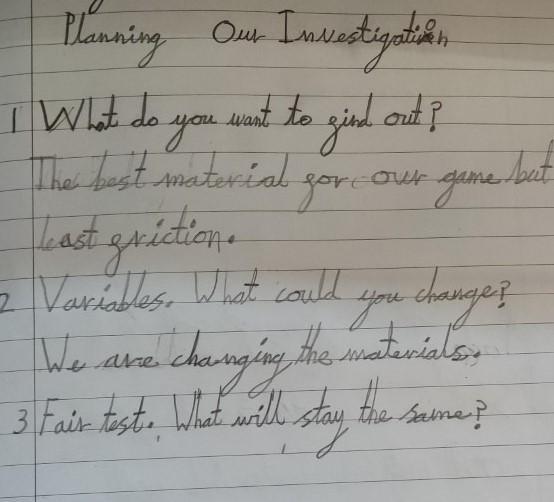 Planning Our Investigation
1 What do you want to find out?
The best material for our game but
least friction.
2 Variables. What could you change?
We are changing the materials.
3 Fair test. What will stay the same?